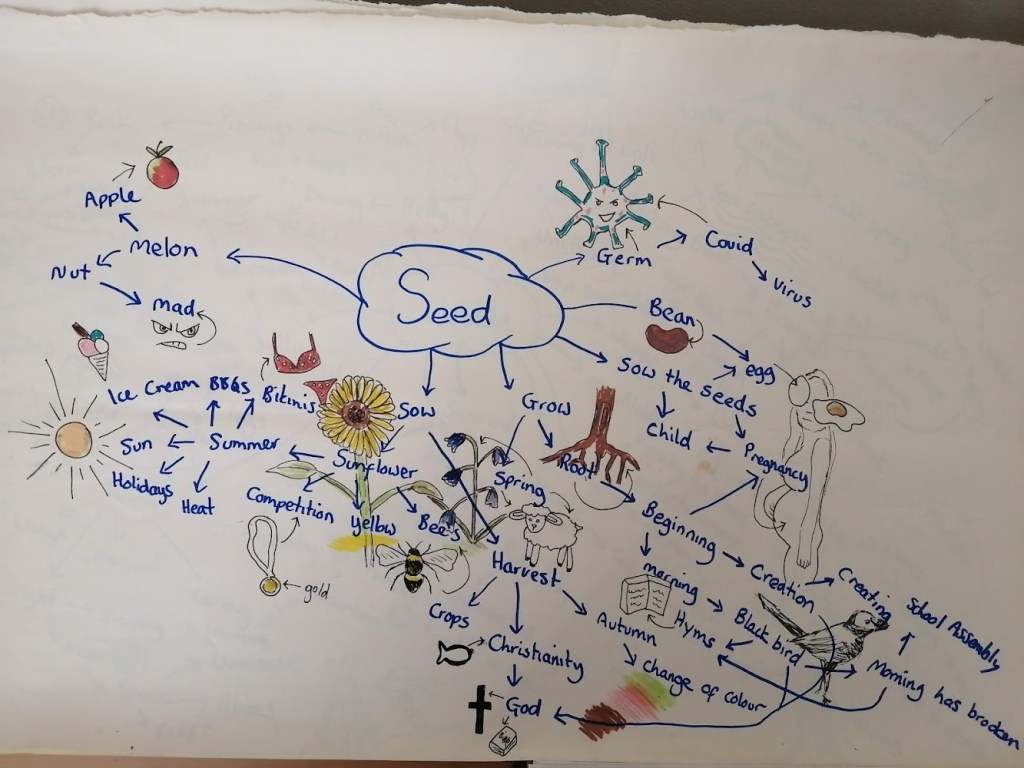 Seed
Apple
Melon
Nut
mad
Germ
Covid
Virus
Bean
egg
Sow the seeds
Child
Pregnancy
Sow
Sunflower
Summer
Ice Cream
BBQs
Bikinis
Sun
Holidays
Heat
Competition
gold
Yellow
Bees
Grow
Spring
Root
Beginning
morning
Creation
Creating
School Assembly
Black bird
Hyms
Morning has brocken
Harvest
Crops
Christianity
God
Autumn
change of colour